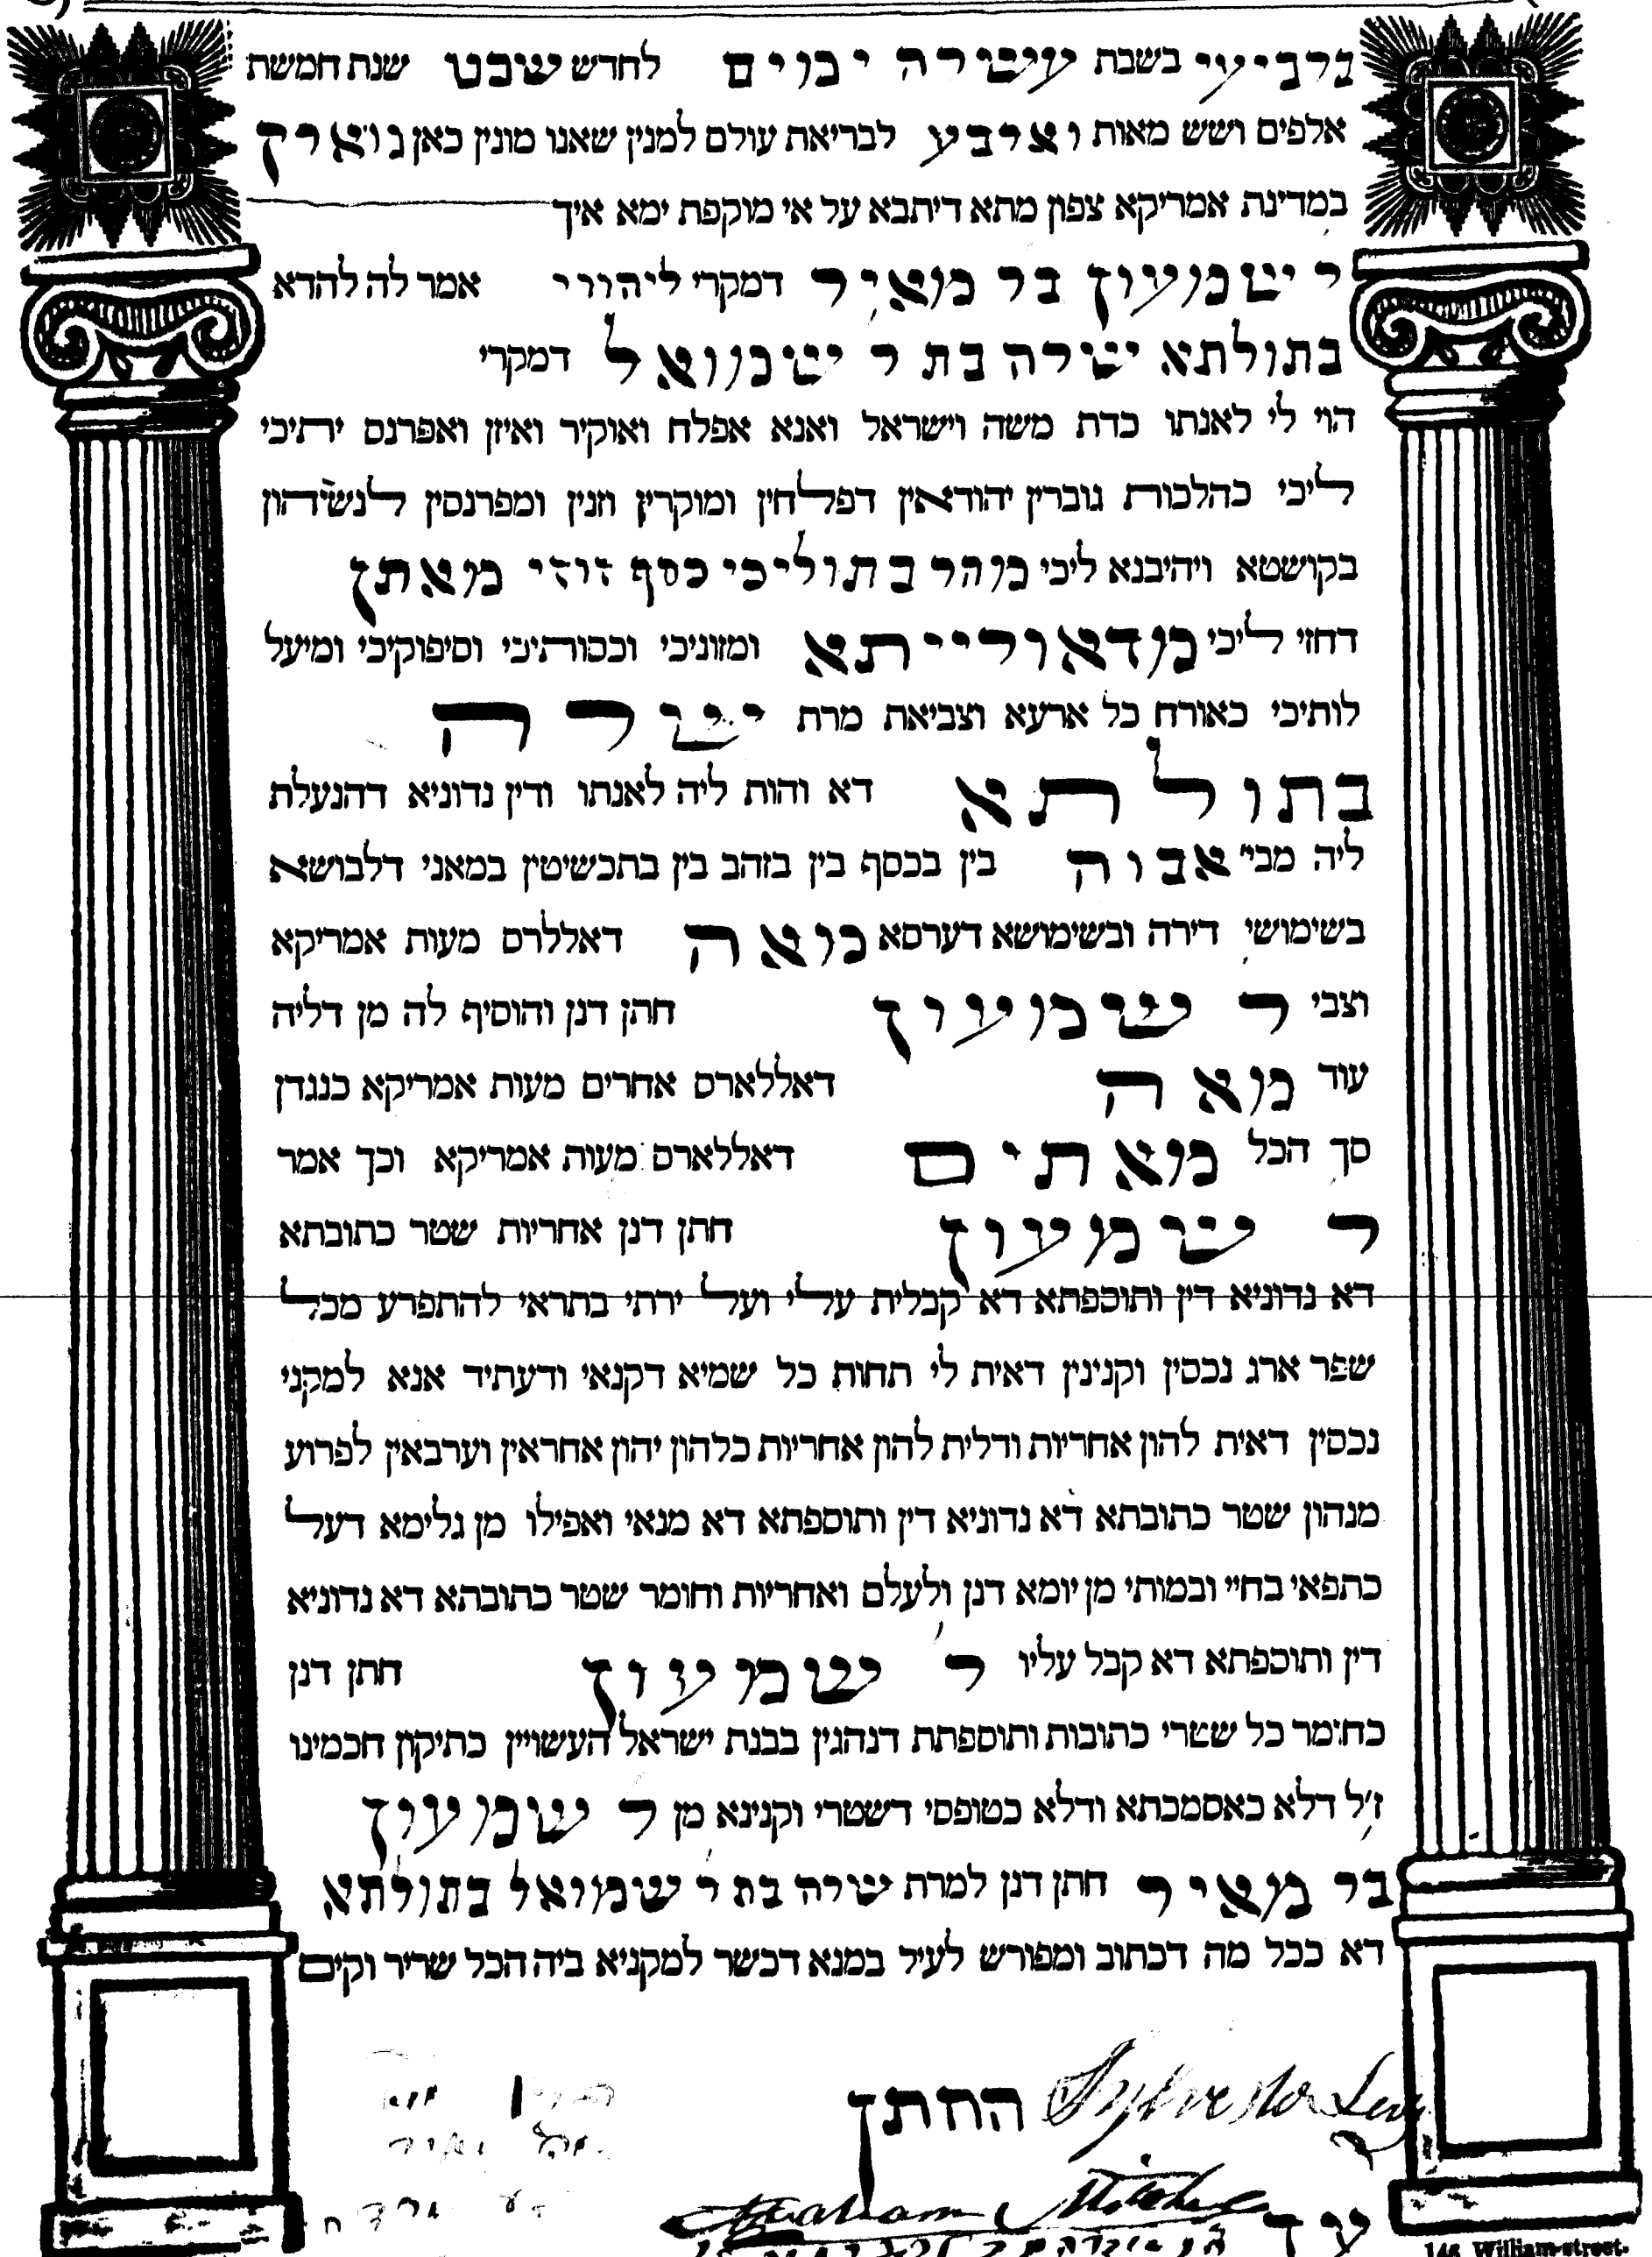 ברביעי בשבת עשרה ימים לחדש שבט שנת חמשת
אלפים ושש מאות וארבע לבריאת עולם למנין שאנו מונין כאן נויארק
במדינת אמריקא צפון מתא דיתבא על אי מוקפת ימא איך
ר שמעון בר מאיר דמקרי ליהווי אמר לה להדא
בתולתא שרה בת ר שמואל דמקרי
הוי לי לאנתו כדת משה וישראל ואנא אפלח ואוקיר ואיזן ואפרנס יתיכי
ליכי כהלכות גוברין יהודאין דפלחין ומוקרין וזנין ומפרנסין לנשיהון
בקושטא ויהיבנא ליכי מוהר בתוליכי כסף זוזי מאתן
דחזי ליכי מדאורייתא ומזוניכי וכסותיכי וסיפוקיכי ומיעל
לותיכי כאורח כל ארעא וצביאת מרת שרה
בתולתא דא והות ליה לאנתו ודין נדוניא דהנעלת
ליה מבי אבוה בין בכסף בין בזהב בין בתכשיטין במאני דלבושא
בשימושי דירה ובשימושא דערסא מאה דאללרס מעות אמריקא
וצבי ר שמעון חתן דנן והוסיף לה מן דליה
עוד מאה דאללארס אחרים מעות אמריקא כנגדן
סך הכל מאתים דאללארס מעות אמריקא וכך אמר
ר שמעון חתן דנן אחריות שטר כתובתא
דא נדוניא דין ותוספתא דא קבלית עלי ועל ירתי בתראי להתפרע מכל
שפר ארג נכסין וקנינין דאית לי תחות כל שמיא דקנאי ודעתיד אנא למקני
נכסין דאית להון אחריות ודלית להון אחריות כלהון יהון אחראין וערבאין לפרוע
מנהון שטר כתובתא דא נדוניא דין ותוספתא דא מנאי ואפילו מן גלימא דעל
כתפאי בחיי ובמותי מן יומא דנן ולעלם ואחריות וחומר שטר כתובתא דא נדוניא
דין ותוספתא דא קבל עליו ר שמעון חתן דנן
כחומר כל שטרי כתובות ותוספתת דנהגין בבנת ישראל העשויין כתיקון חכמינו
ז׳ל דלא כאסמכתא ודלא כטופסי דשטרי וקנינא מן ר שמעון
בר מאיר חתן דנן למרת שרה בת ר שמואל בתולתא
דא ככל מה דכתוב ומפורש לעיל במנא דכשר למקניא ביה הכל שריר וקים
החתן Sylvester Levy
עד Abraham
146 William-street.